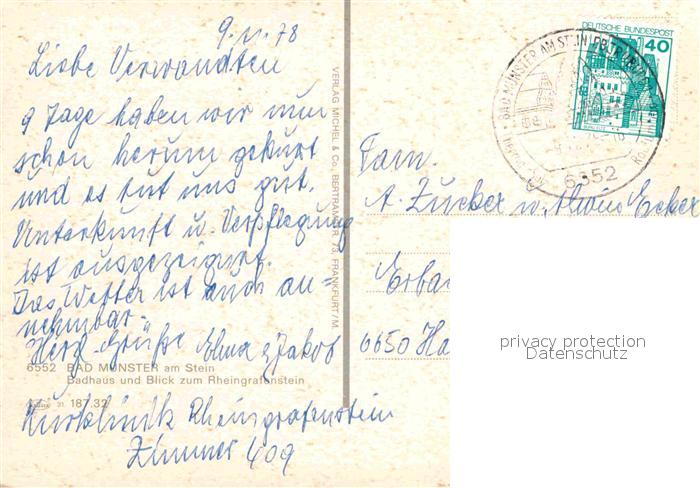 9.11.78
Liebe Verwandten
9 Tage haben wir nun
schon herum gekurt
und es tut uns gut.
Unterkunft u. Verpflegung
ist ausgezeignet.
Das Wetter ist auch an=
nehmbar.
Herzl. Grüße Elma & Jakob
6552 BAD MÜNSTER am Stein
Badhaus und Blick zum Rheingrafenstein
31 187.32
Kurklinik Rheingrafenstein
Zimmer 409
VERLAG MICHEL & Co. BERTRAMSTR. 73 FRANKFURT/M.
DEUTSCHE BUNDESPOST
40
BAD MÜNSTER AM STEIN-EBERNBURG
6552
Fam.
A. Zucker u. Alwin Ecker
Erba
6650 Ho
privacy protection
Datenschutz